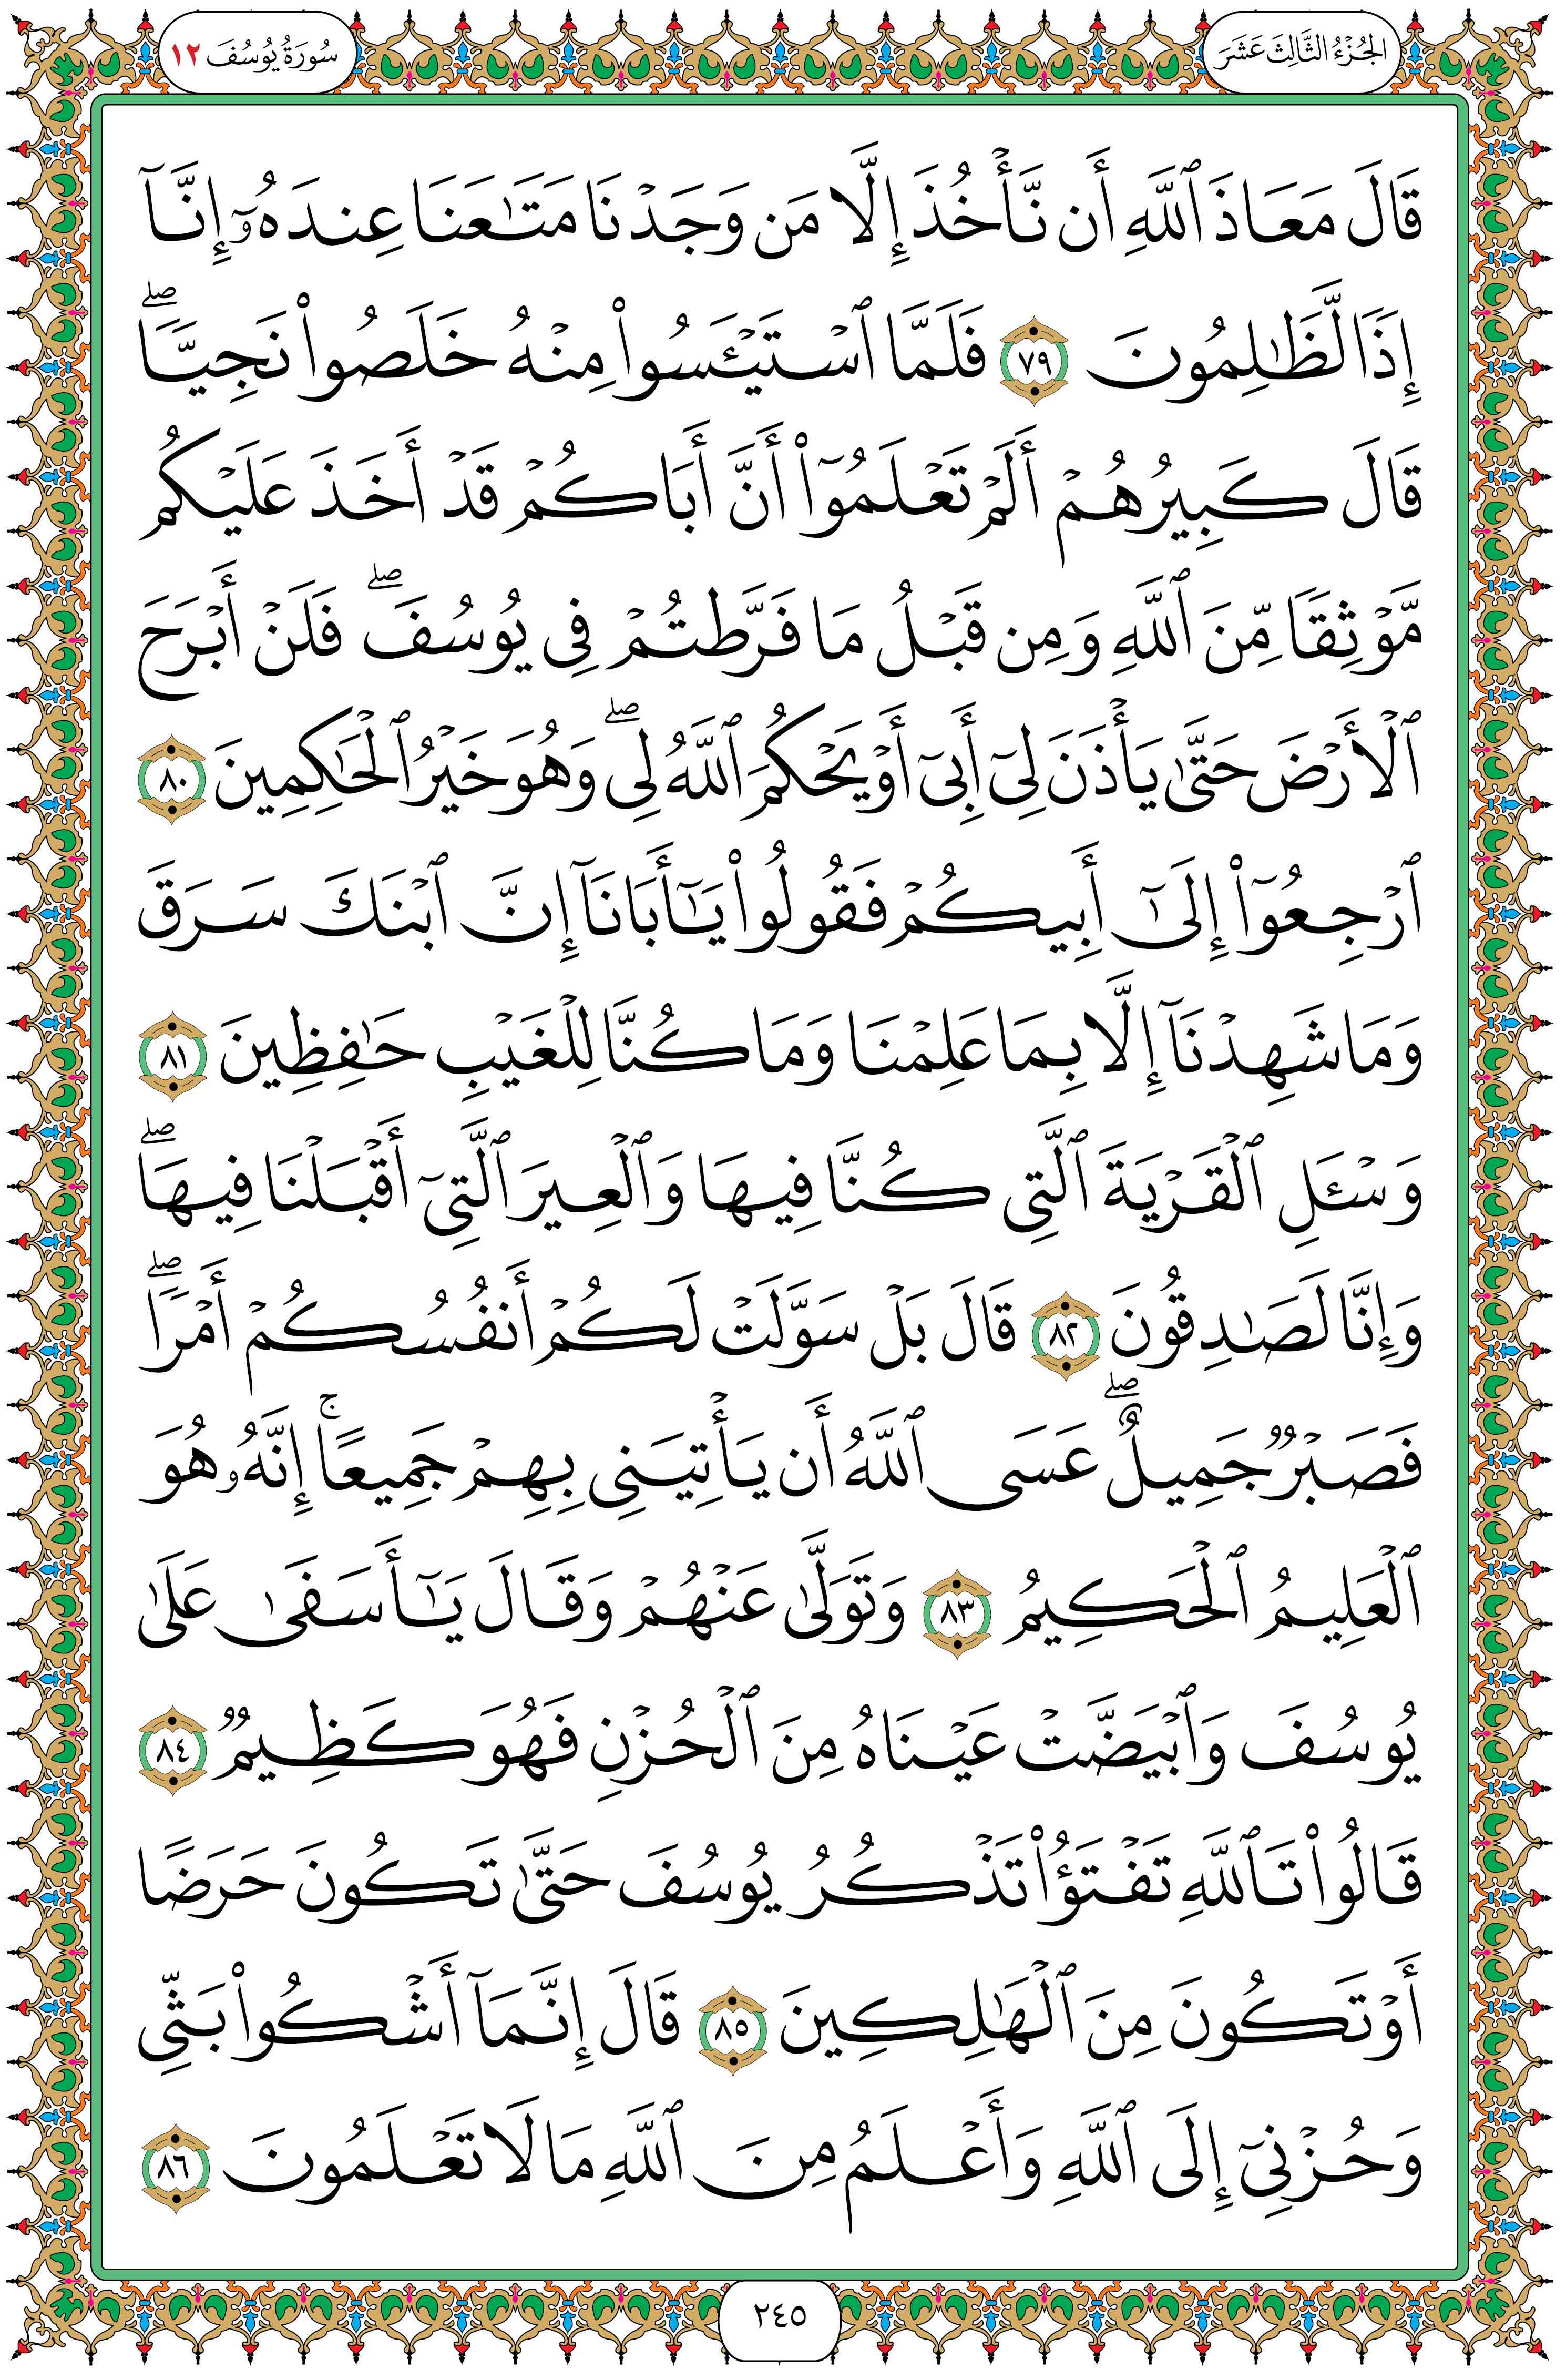 الجُزْءُ الثَّالِثَ عَشَرَ
سُورَةُ يُوسُفَ ١٢
قَالَ مَعَاذَ ٱللَّهِ أَن نَّأۡخُذَ إِلَّا مَن وَجَدۡنَا مَتَٰعَنَا عِندَهُۥٓ إِنَّآ
إِذٗا لَّظَٰلِمُونَ ٧٩ فَلَمَّا ٱسۡتَيۡـَٔسُواْ مِنۡهُ خَلَصُواْ نَجِيّٗاۖ
قَالَ كَبِيرُهُمۡ أَلَمۡ تَعۡلَمُوٓاْ أَنَّ أَبَاكُمۡ قَدۡ أَخَذَ عَلَيۡكُم
مَّوۡثِقٗا مِّنَ ٱللَّهِ وَمِن قَبۡلُ مَا فَرَّطتُمۡ فِي يُوسُفَۖ فَلَنۡ أَبۡرَحَ
ٱلۡأَرۡضَ حَتَّىٰ يَأۡذَنَ لِيٓ أَبِيٓ أَوۡ يَحۡكُمَ ٱللَّهُ لِيۖ وَهُوَ خَيۡرُ ٱلۡحَٰكِمِينَ ٨٠
ٱرۡجِعُوٓاْ إِلَىٰٓ أَبِيكُمۡ فَقُولُواْ يَٰٓأَبَانَآ إِنَّ ٱبۡنَكَ سَرَقَ
وَمَا شَهِدۡنَآ إِلَّا بِمَا عَلِمۡنَا وَمَا كُنَّا لِلۡغَيۡبِ حَٰفِظِينَ ٨١
وَسۡـَٔلِ ٱلۡقَرۡيَةَ ٱلَّتِي كُنَّا فِيهَا وَٱلۡعِيرَ ٱلَّتِيٓ أَقۡبَلۡنَا فِيهَاۖ
وَإِنَّا لَصَٰدِقُونَ ٨٢ قَالَ بَلۡ سَوَّلَتۡ لَكُمۡ أَنفُسُكُمۡ أَمۡرٗاۖ
فَصَبۡرٞ جَمِيلٌۖ عَسَى ٱللَّهُ أَن يَأۡتِيَنِي بِهِمۡ جَمِيعًاۚ إِنَّهُۥ هُوَ
ٱلۡعَلِيمُ ٱلۡحَكِيمُ ٨٣ وَتَوَلَّىٰ عَنۡهُمۡ وَقَالَ يَٰٓأَسَفَىٰ عَلَىٰ
يُوسُفَ وَٱبۡيَضَّتۡ عَيۡنَاهُ مِنَ ٱلۡحُزۡنِ فَهُوَ كَظِيمٞ ٨٤
قَالُواْ تَٱللَّهِ تَفۡتَؤُاْ تَذۡكُرُ يُوسُفَ حَتَّىٰ تَكُونَ حَرَضًا
أَوۡ تَكُونَ مِنَ ٱلۡهَٰلِكِينَ ٨٥ قَالَ إِنَّمَآ أَشۡكُواْ بَثِّي
وَحُزۡنِيٓ إِلَى ٱللَّهِ وَأَعۡلَمُ مِنَ ٱللَّهِ مَا لَا تَعۡلَمُونَ ٨٦
٢٤٥